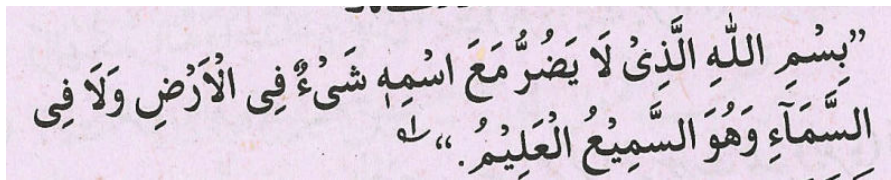 ”بِسْمِ اللّٰهِ الَّذِیْ لَا یَضُرُّ مَعَ اسْمِهٖ شَیْءٌ فِی الْاَرْضِ وَلَا فِی
السَّمَآءِ وَهُوَ السَّمِیْعُ الْعَلِیْمُ.“